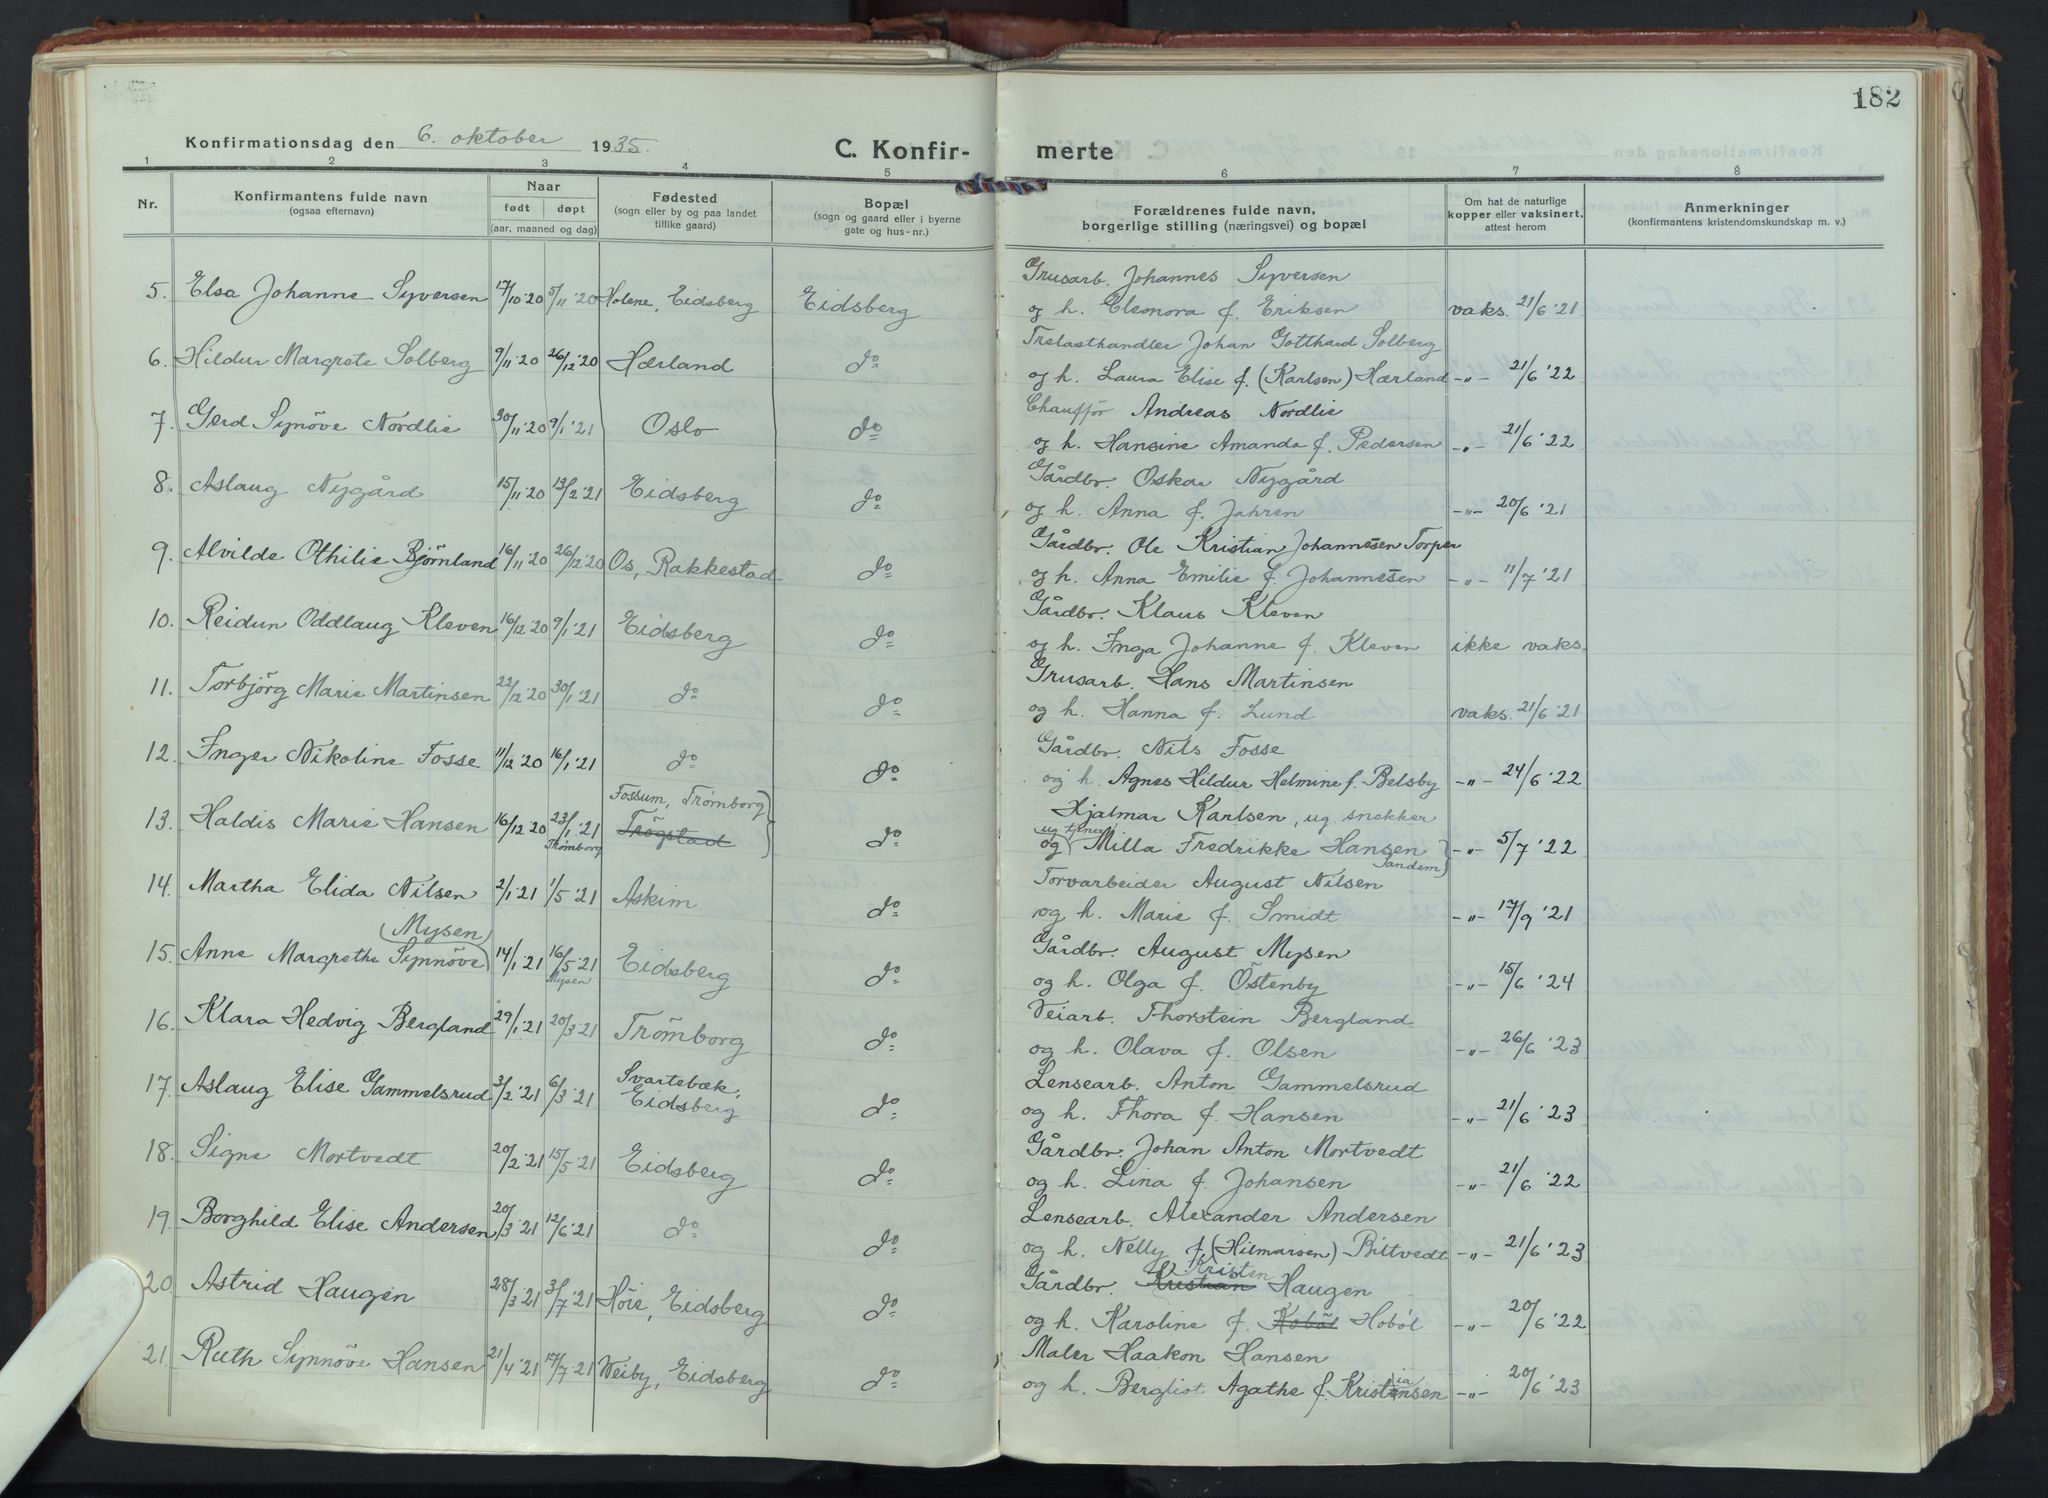 182
Konfirmationsdag den 6. oktober 1935.
C. Konfirmerte
1 2 3 4 5 6 7 8
Nr.
Konfirmantens fulde navn
(ogsaa efternavn)
Naar
født døpt
(aar, maaned og dag)
Fødested
(sogn eller by og paa landet
tillike gaard)
Bopæl
(sogn og gaard eller i byerne
gate og hus-nr.)
Forældrenes fulde navn,
borgerlige stilling (næringsvei) og bopæl
Om hat de naturlige
kopper eller vaksinert,
attest herom
Anmerkninger
(konfirmantens kristendomskundskap m. v.)
Grusarb. Johannes Syversen
5. Elsa Johanne Syversen 17/10 '20 5/11 '20 Holene, Eidsberg Eidsberg og h. Eleonora f. Eriksen vaks. 21/6 '21
Trelasthandler Johan Gotthard Solberg
6. Hildur Margrete Solberg 9/11 '20 26/12 '20 Hærland do og h. Laura Elise f. (Karlsen) Hærland -„- 21/6 '22
Chauffør Andreas Nordlie
7. Gerd Synöve Nordlie 30/11 '20 9/1 '21 Oslo do og h. Hansine Amanda f. Pedersen -„- 21/6 '22
Gårdbr. Oskar Nygård
8. Aslaug Nygård 15/11 '20 13/2 '21 Eidsberg do og h. Anna f. Jahren -„- 20/6 '21
Gårdbr. Ole Kristian Johannesen Torper
9. Alvilde Othilie Bjørnland 16/11 '20 26/12 '20 Os, Rakkestad do og h. Anna Emilie f. Johannesen -„- 11/7 '21
Gårdbr. Klaus Kleven
10. Reidun Oddlaug Kleven 16/12 '20 9/1 '21 Eidsberg do og h. Inga Johanne f. Kleven ikke vaks.
Grusarb. Hans Martinsen
11. Torbjörg Marie Martinsen 22/12 '20 30/1 '21 do do og h. Hanna f. Lund vaks. 21/6 '21
Gårdbr. Nils Fosse
12. Inger Nikoline Fosse 11/12 '20 16/1 '21 do do og h. Agnes Hildur Helmine f. Belsby -„- 24/6 '22
Fossum, Trömborg
Hjalmar Karlsen, ug. snekker
13. Haldis Marie Hansen 16/12 '20 23/1 '21 Trömborg Trögstad do og ug. tjener Milla Fredrikke Hansen Sandem -„- 5/7 '22
Torvarbeider August Nilsen
14. Martha Elida Nilsen 2/1 '21 1/5 '21 Askim do og h. Marie f. Smidt -„- 17/9 '21
(Mysen)
Gårdbr. August Mysen
15. Anne Margrethe Synnöve 14/1 '21 16/5 '21 Mysen Eidsberg do og h. Olga f. Östenby -„- 15/6 '24
Veiarb. Thorstein Bergland
16. Klara Hedvig Bergland 29/1 '21 20/3 '21 Trömborg do og h. Olava f. Olsen -„- 26/6 '23
Lensearb. Anton Gammelsrud
17. Aslaug Elise Gammelsrud 3/2 '21 6/3 '21 Svartebæk, Eidsberg do og h. Thora f. Hansen -„- 21/6 '23
Gårdbr. Johan Anton Mortvedt
18. Signe Mortvedt 20/2 '21 15/5 '21 Eidsberg do og h. Lina f. Johansen -„- 21/6 '22
Lensearb. Alexander Andersen
19. Borghild Elise Andersen 20/3 '21 12/6 '21 do do og h. Nelly f. (Hilmarsen) Biltvedt -„- 21/6 '23
Gårdbr. Kristian Kristen Haugen
20. Astrid Haugen 28/3 '21 3/7 '21 Höie, Eidsberg do og h. Karoline f. Koböl Hoböl -„- 20/6 '22
Maler Haakon Hansen
21. Ruth Synnöve Hansen 21/4 '21 17/7 '21 Weiby, Eidsberg do og h. Bergliot Agathe f. Kristiansen -„- 20/6 '23